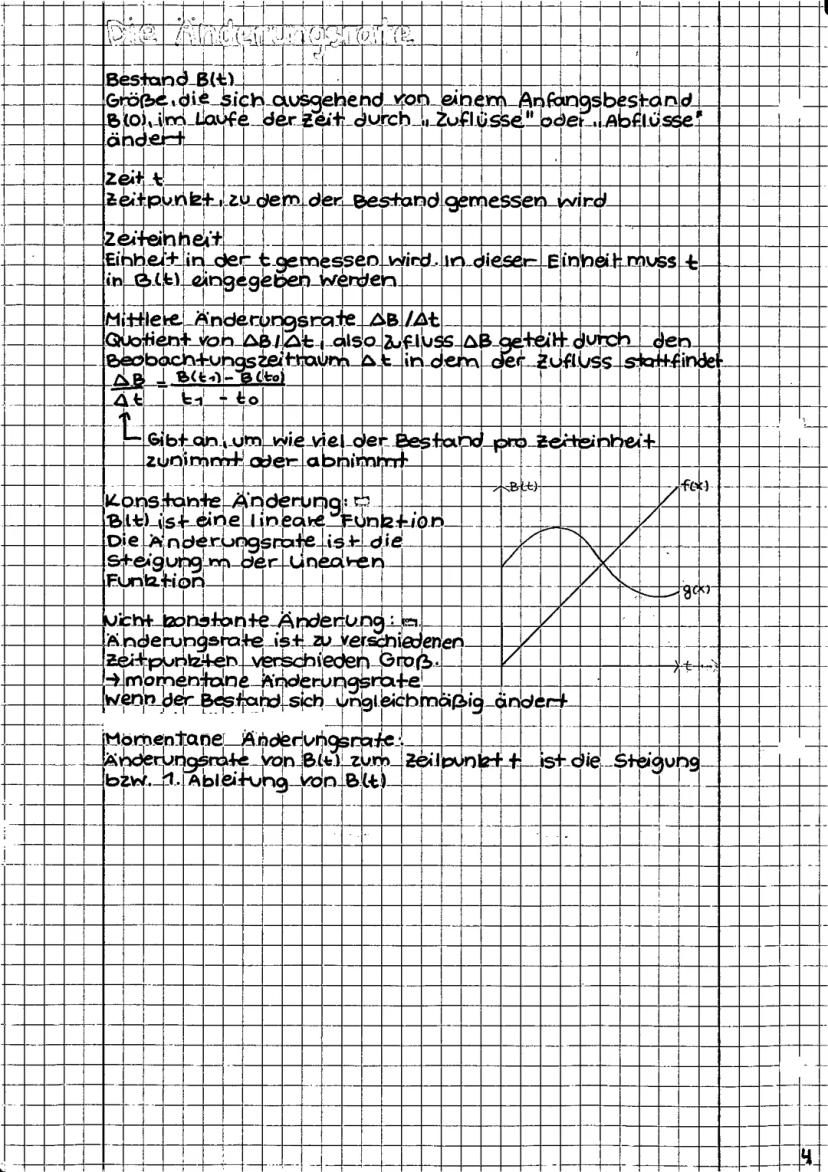 Die Änderungsrate
Bestand B(t)
Größe, die sich ausgehend von einem Anfangsbestand
B(0), im Laufe der Zeit durch „Zuflüsse" oder „Abflüsse"
ändert
Zeit t
Zeitpunkt, zu dem der Bestand gemessen wird
Zeiteinheit
Einheit in der t gemessen wird. In dieser Einheit muss t
in B(t) eingegeben werden
Mittlere Änderungsrate ΔB/Δt
Quotient von ΔB/Δt, also Zufluss ΔB geteilt durch den
Beobachtungszeitraum Δt in dem der Zufluss stattfindet
ΔB/Δt = B(t1) - B(t0) / t1 - t0
Gibt an, um wie viel der Bestand pro Zeiteinheit
zunimmt oder abnimmt
Konstante Änderung:
B(t) ist eine lineare Funktion
Die Änderungsrate ist die
Steigung m der Linearen
Funktion
B(t)
f(x)
g(x)
t
Nicht konstante Änderung:
Änderungsrate ist zu verschiedenen
Zeitpunkten verschieden Groß.
→ momentane Änderungsrate
wenn der Bestand sich ungleichmäßig ändert
Momentane Änderungsrate:
Änderungsrate von B(t) zum Zeitpunkt t ist die Steigung
bzw. 1. Ableitung von B(t)
4